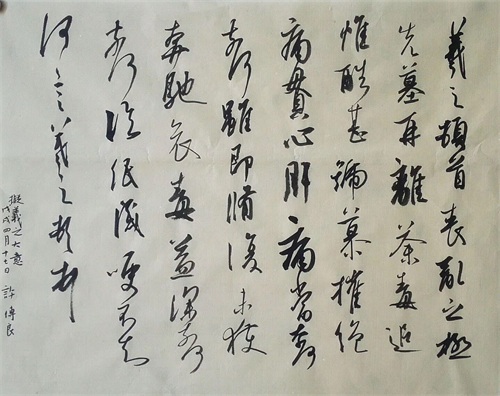 羲之頓首喪亂之極
先墓再離荼毒追
惟酷甚號慕摧絕
痛貫心肝痛當奈何
奈何雖即脩復未獲
奔馳哀毒益深奈何
奈何臨紙感哽不知
何言羲之頓首
擬羲之大意
戊戌四月十七日 許